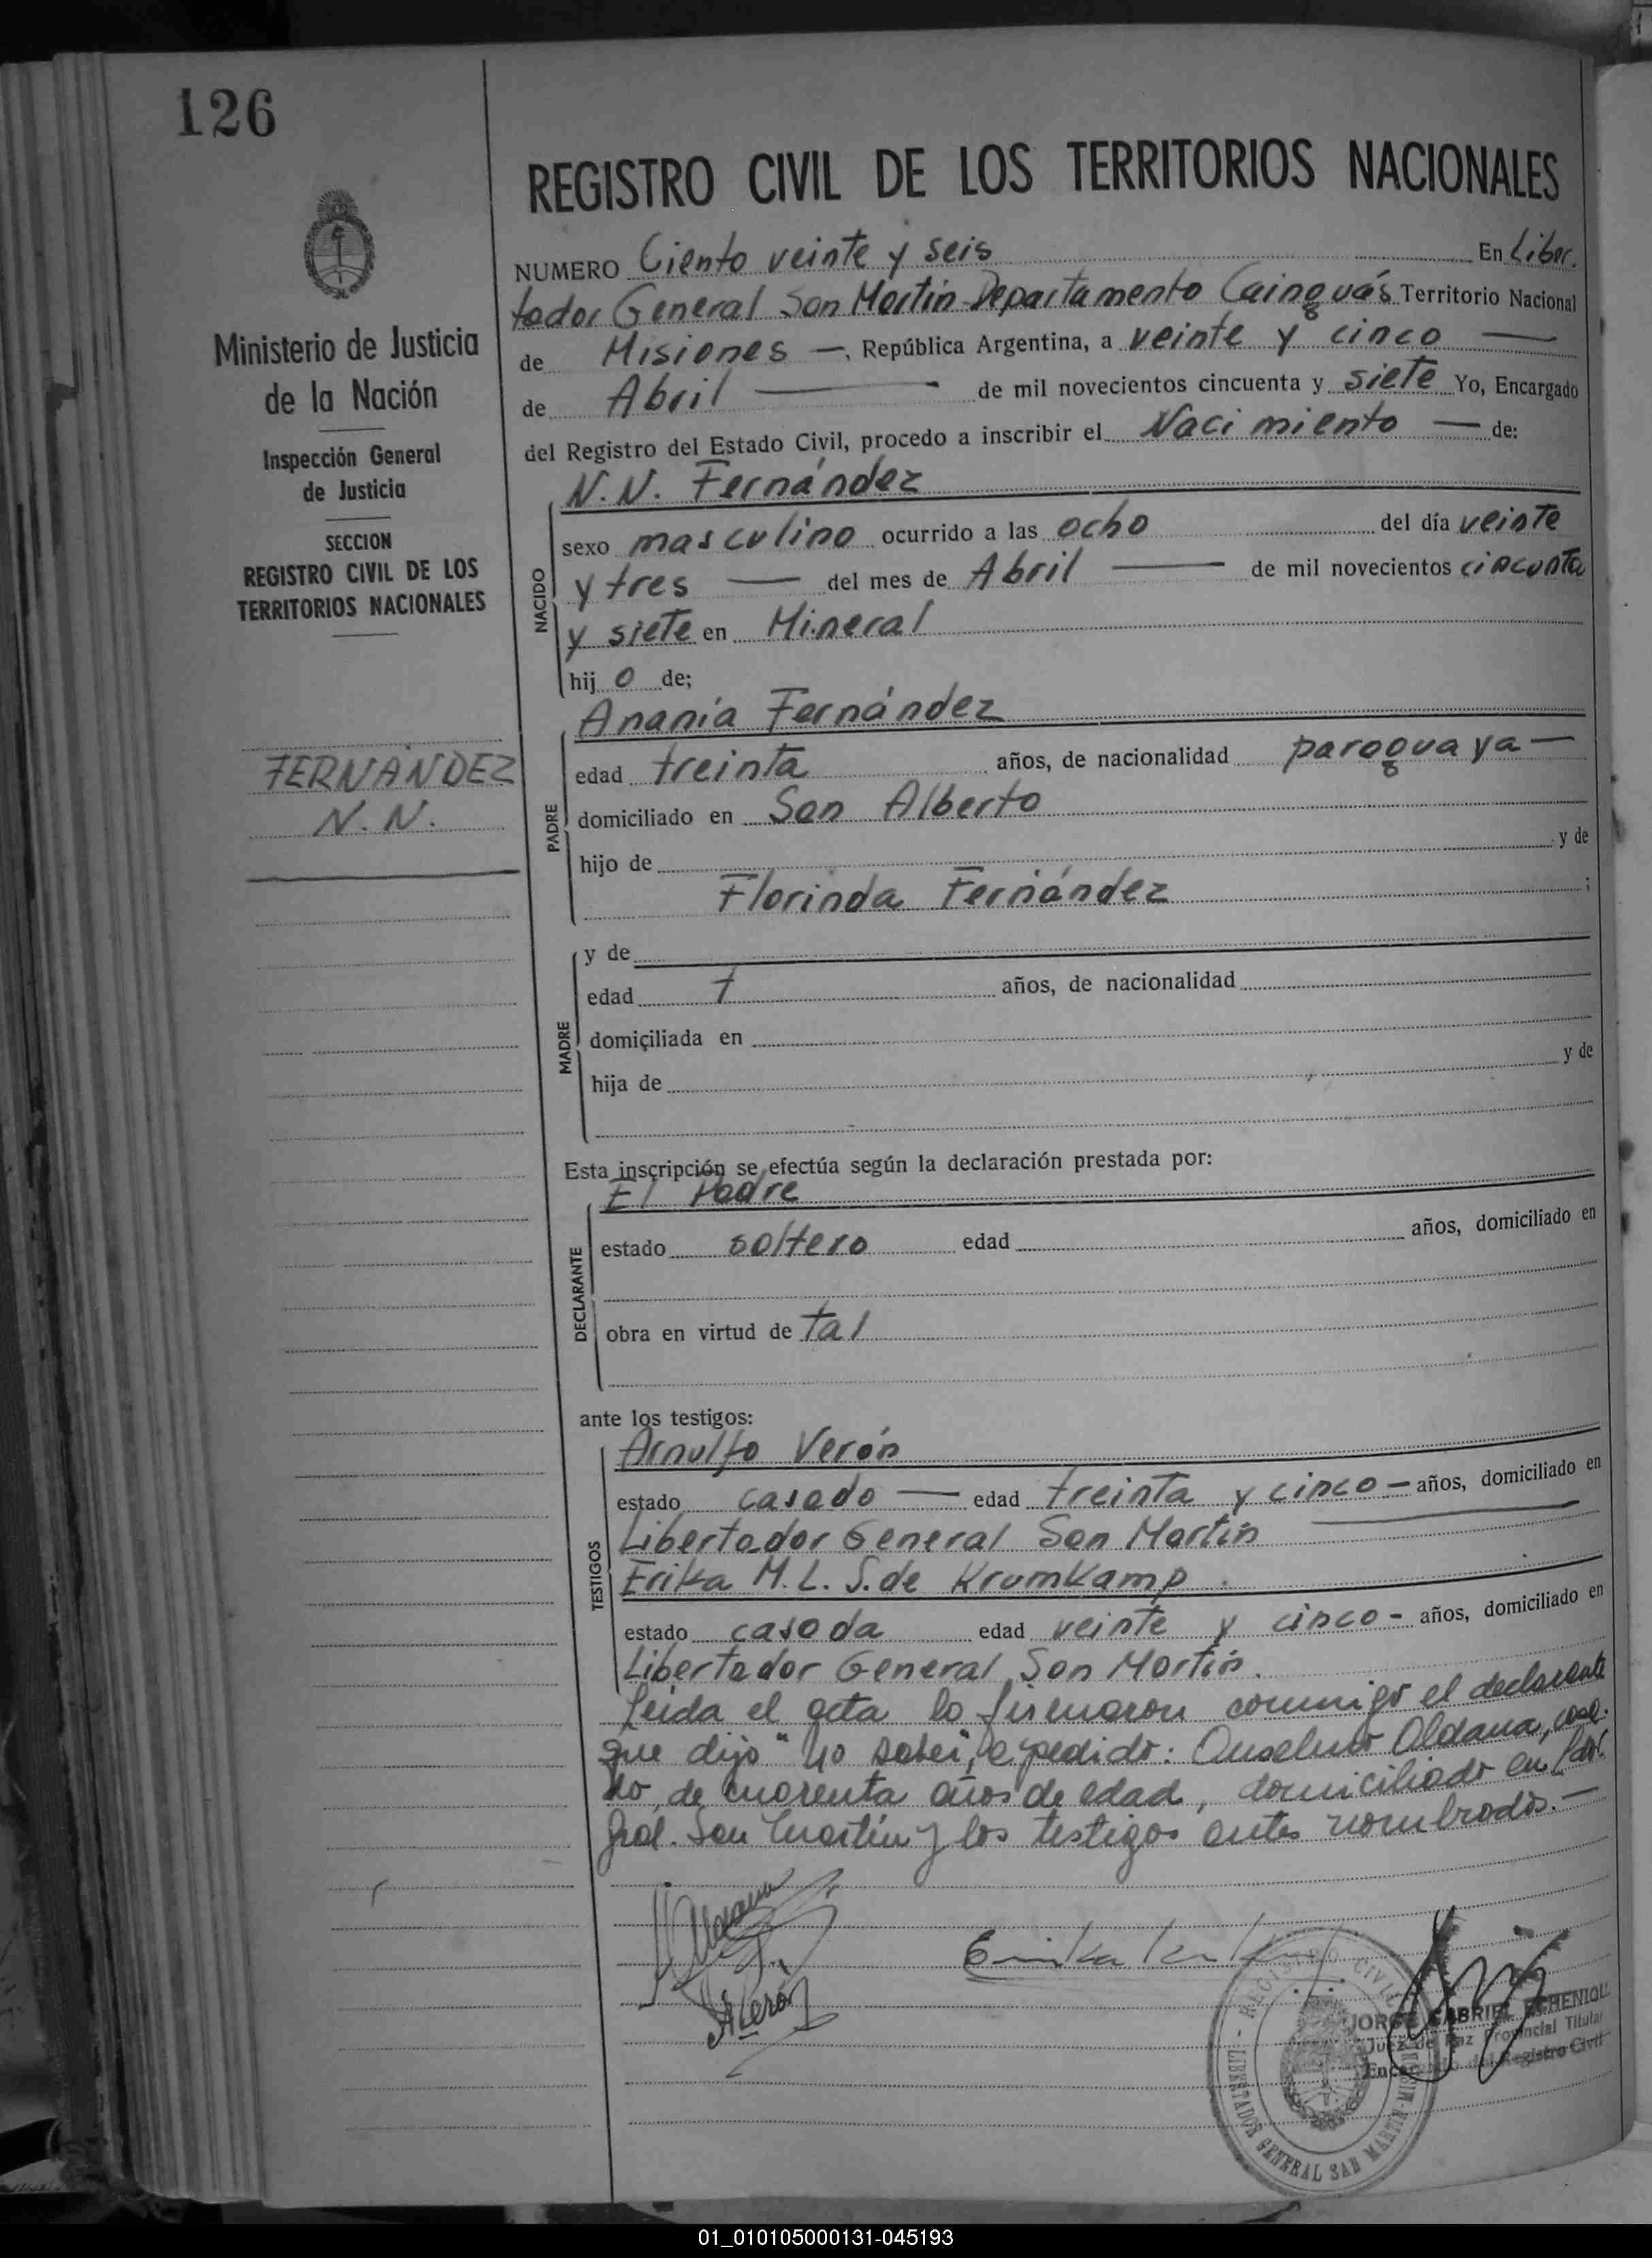 126
Ministerio de Justicia
de la Nación
Inspección General
de Justicia
SECCION
REGISTRO CIVIL DE LOS
TERRITORIOS NACIONALES
FERNANDEZ
N. N.
REGISTRO CIVIL DE LOS TERRITORIOS NACIONALES
NUMERO Ciento veinte y seis En Liber.
tador General San Martín Departamento Cainguás Territorio Nacional
de Misiones —, República Argentina, a veinte y cinco —
de Abril — de mil novecientos cincuenta y siete Yo, Encargado
del Registro del Estado Civil, procedo a inscribir el Nacimiento — de:
N. N. Fernández
NACIDO
sexo masculino ocurrido a las ocho del día veinte
y tres — del mes de Abril — de mil novecientos cincuenta
y siete en Mineral
hij o de;
Anania Fernández
PADRE
edad treinta años, de nacionalidad paraguaya —
domiciliado en San Alberto
hijo de y de
Florinda Fernández ;
MADRE
y de
edad años, de nacionalidad
domiciliada en
hija de y de
Esta inscripción se efectúa según la declaración prestada por:
El Padre
DECLARANTE
estado soltero edad años, domiciliado en
obra en virtud de tal
ante los testigos:
TESTIGOS
Arnulfo Verón
estado casado — edad treinta y cinco — años, domiciliado en
Libertador General San Martín
Erika M. L. S. de Krumkamp
estado casada edad veinte y cinco - años, domiciliado en
Libertador General San Martín.
Leida el acta la firmaron conmigo el declarante
que dijo "no saber", a pedido: Anselmo Aldana, casa-
do, de cuarenta años de edad, domiciliado en Ldor.
Gral. San Martín y los testigos antes nombrados. —
Aldana
A Verón
Erika
REGISTRO CIVIL
LIBERTADOR GENERAL SAN MARTIN
JORGE GABRIEL ECHENIQUE
Juez de Paz Provincial Titular
Encargado del Registro Civil
01_010105000131-045193